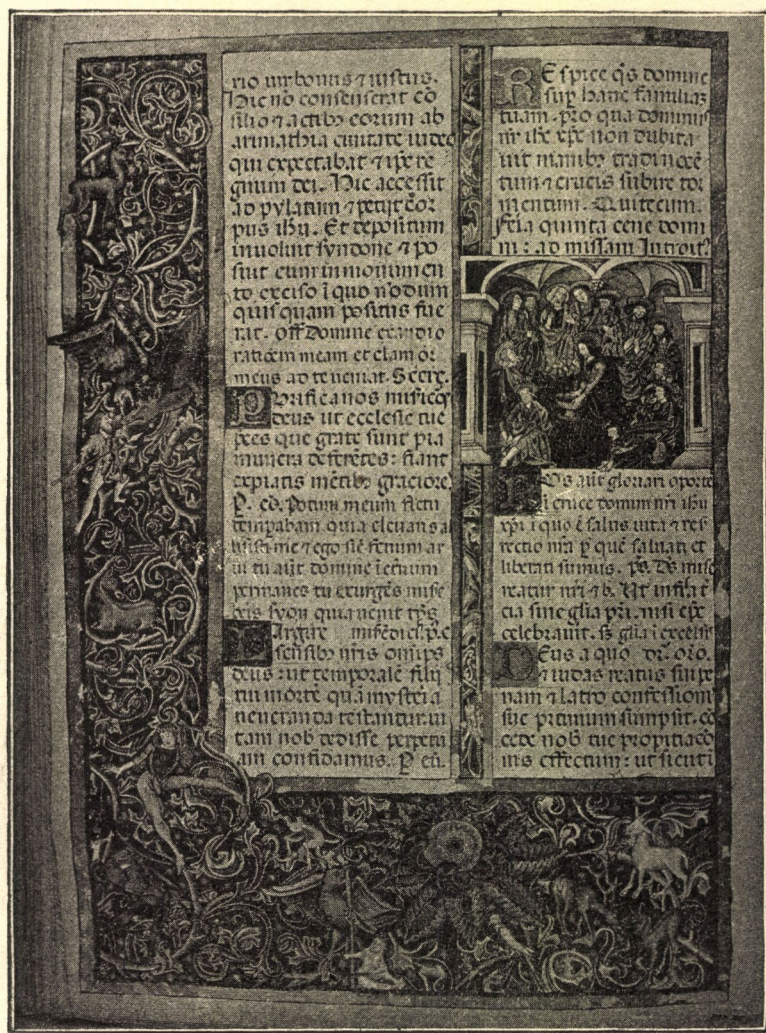 rio vir bonus ⁊ iustus.
Hic nō consenserat cō
silio ⁊ actibꝫ eorum ab
arimathia ciuitate iudee
qui expectabat ⁊ ip̄e re
gnum dei. Hic accessit
ad pylatum ⁊ petijt cor
pus ihū. Et depositum
inuoluit syndone ⁊ po
suit eum in monumen
to exciso ī quo nōdum
quisquam positus fue
rat. Off Domine exaudi o
rationem meam et clam or
meus ad te ueniat. Secre.
Purifica nos misericꝫ
deus ut ecclesie tue
p̄ces que grate sunt pia
munera deferētes: fiant
expiatis mētibꝫ graciore
P. cō. Potum meum cum fletu
temperabam quia eleuans al
lisisti me ⁊ ego sic̄ fenum ar
ui tu aūt domine ī eternum
permanes tu exurgēs mise
beris syon quia uenit tp̄s
Largire
sensibꝫ nr̄is om̄ps
deus: ut temporalē filij
tui mortē quā mysteria
ueneranda testantur: ui
tam nob̄ dedisse perpetu
am confidamus. P eū.
REspice q̄s domine
sup̄ hanc familiaꝫ
tuam. pro qua dominus
nr̄ ihc̄ xp̄c non dubita
uit manibꝫ tradi nocē
tum ⁊ crucis subire tor
mentum. Qui tecum.
Feria quinta cene domi
ni: ad missam Introit⁹
NOs aūt gloriari oporte
ī cruce domini nr̄i ihū
xp̄i ī quo ē salus uita ⁊ res
rectio nr̄a p̄ quē saluati et
liberati sumus. ps. Ds mise
reatur nr̄i ⁊ b. Et
sine glīa pr̄i. nisi
celebrauit. glīa ī excelsis
DEus a quo oro.
⁊ iudas reatus sui pe
nam ⁊ latro confessionis
sue premium sumpsit. cō
cede nob̄ tue propitiacō
nis effectum: ut sicuti